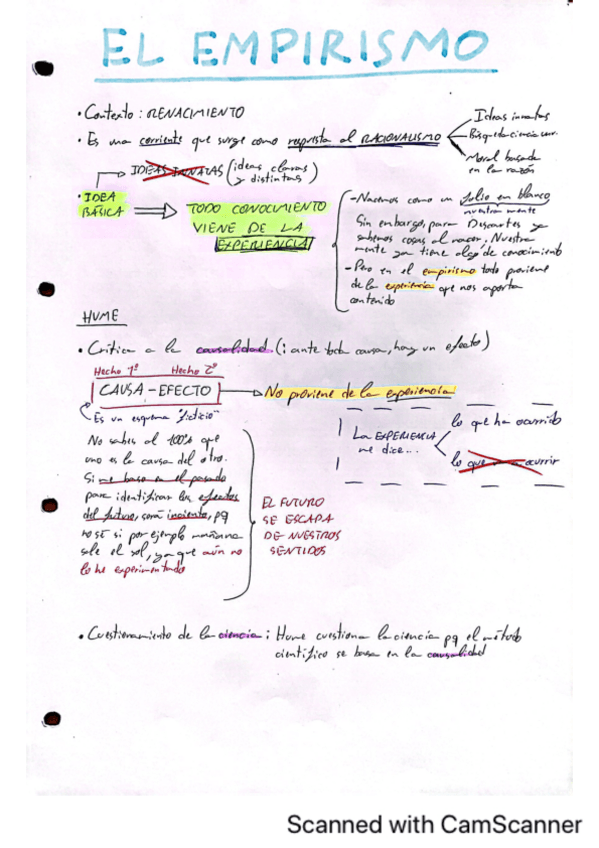 EL EMPIRISMO
• Contexto: RENACIMIENTO
• Es una corriente que surge como respuesta al RACIONALISMO
Ideas innatas
Búsqueda ciencia univ.
Moral basada
en la razón
IDEAS INNATAS (ideas claras
y distintas)
• IDEA
BÁSICA
TODO CONOCIMIENTO
VIENE DE LA
EXPERIENCIA
- Nacemos como un folio en blanco
nuestra mente
Sin embargo, para Descartes ya
sabemos cosas al nacer. Nuestra
mente ya tiene algo de conocimiento
- Pero en el empirismo todo proviene
de la experiencia que nos aporta
contenido
HUME
• Crítica a la causalidad (: ante toda causa, hay un efecto)
Hecho 1º Hecho 2º
CAUSA - EFECTO
No proviene de la experiencia
Es un esquema "ficticio"
La EXPERIENCIA
me dice...
lo que ha ocurrido
lo que va a ocurrir
No sabes al 100% que
uno es la causa del otro.
Si me baso en el pasado
para identificar los efectos
del futuro, será incierto, pq
no sé si por ejemplo mañana
sale el sol, ya que aún no
lo he experimentado
EL FUTURO
SE ESCAPA
DE NUESTROS
SENTIDOS
• Cuestionamiento de la ciencia: Hume cuestiona la ciencia pq el método
científico se basa en la causalidad
Scanned with CamScanner